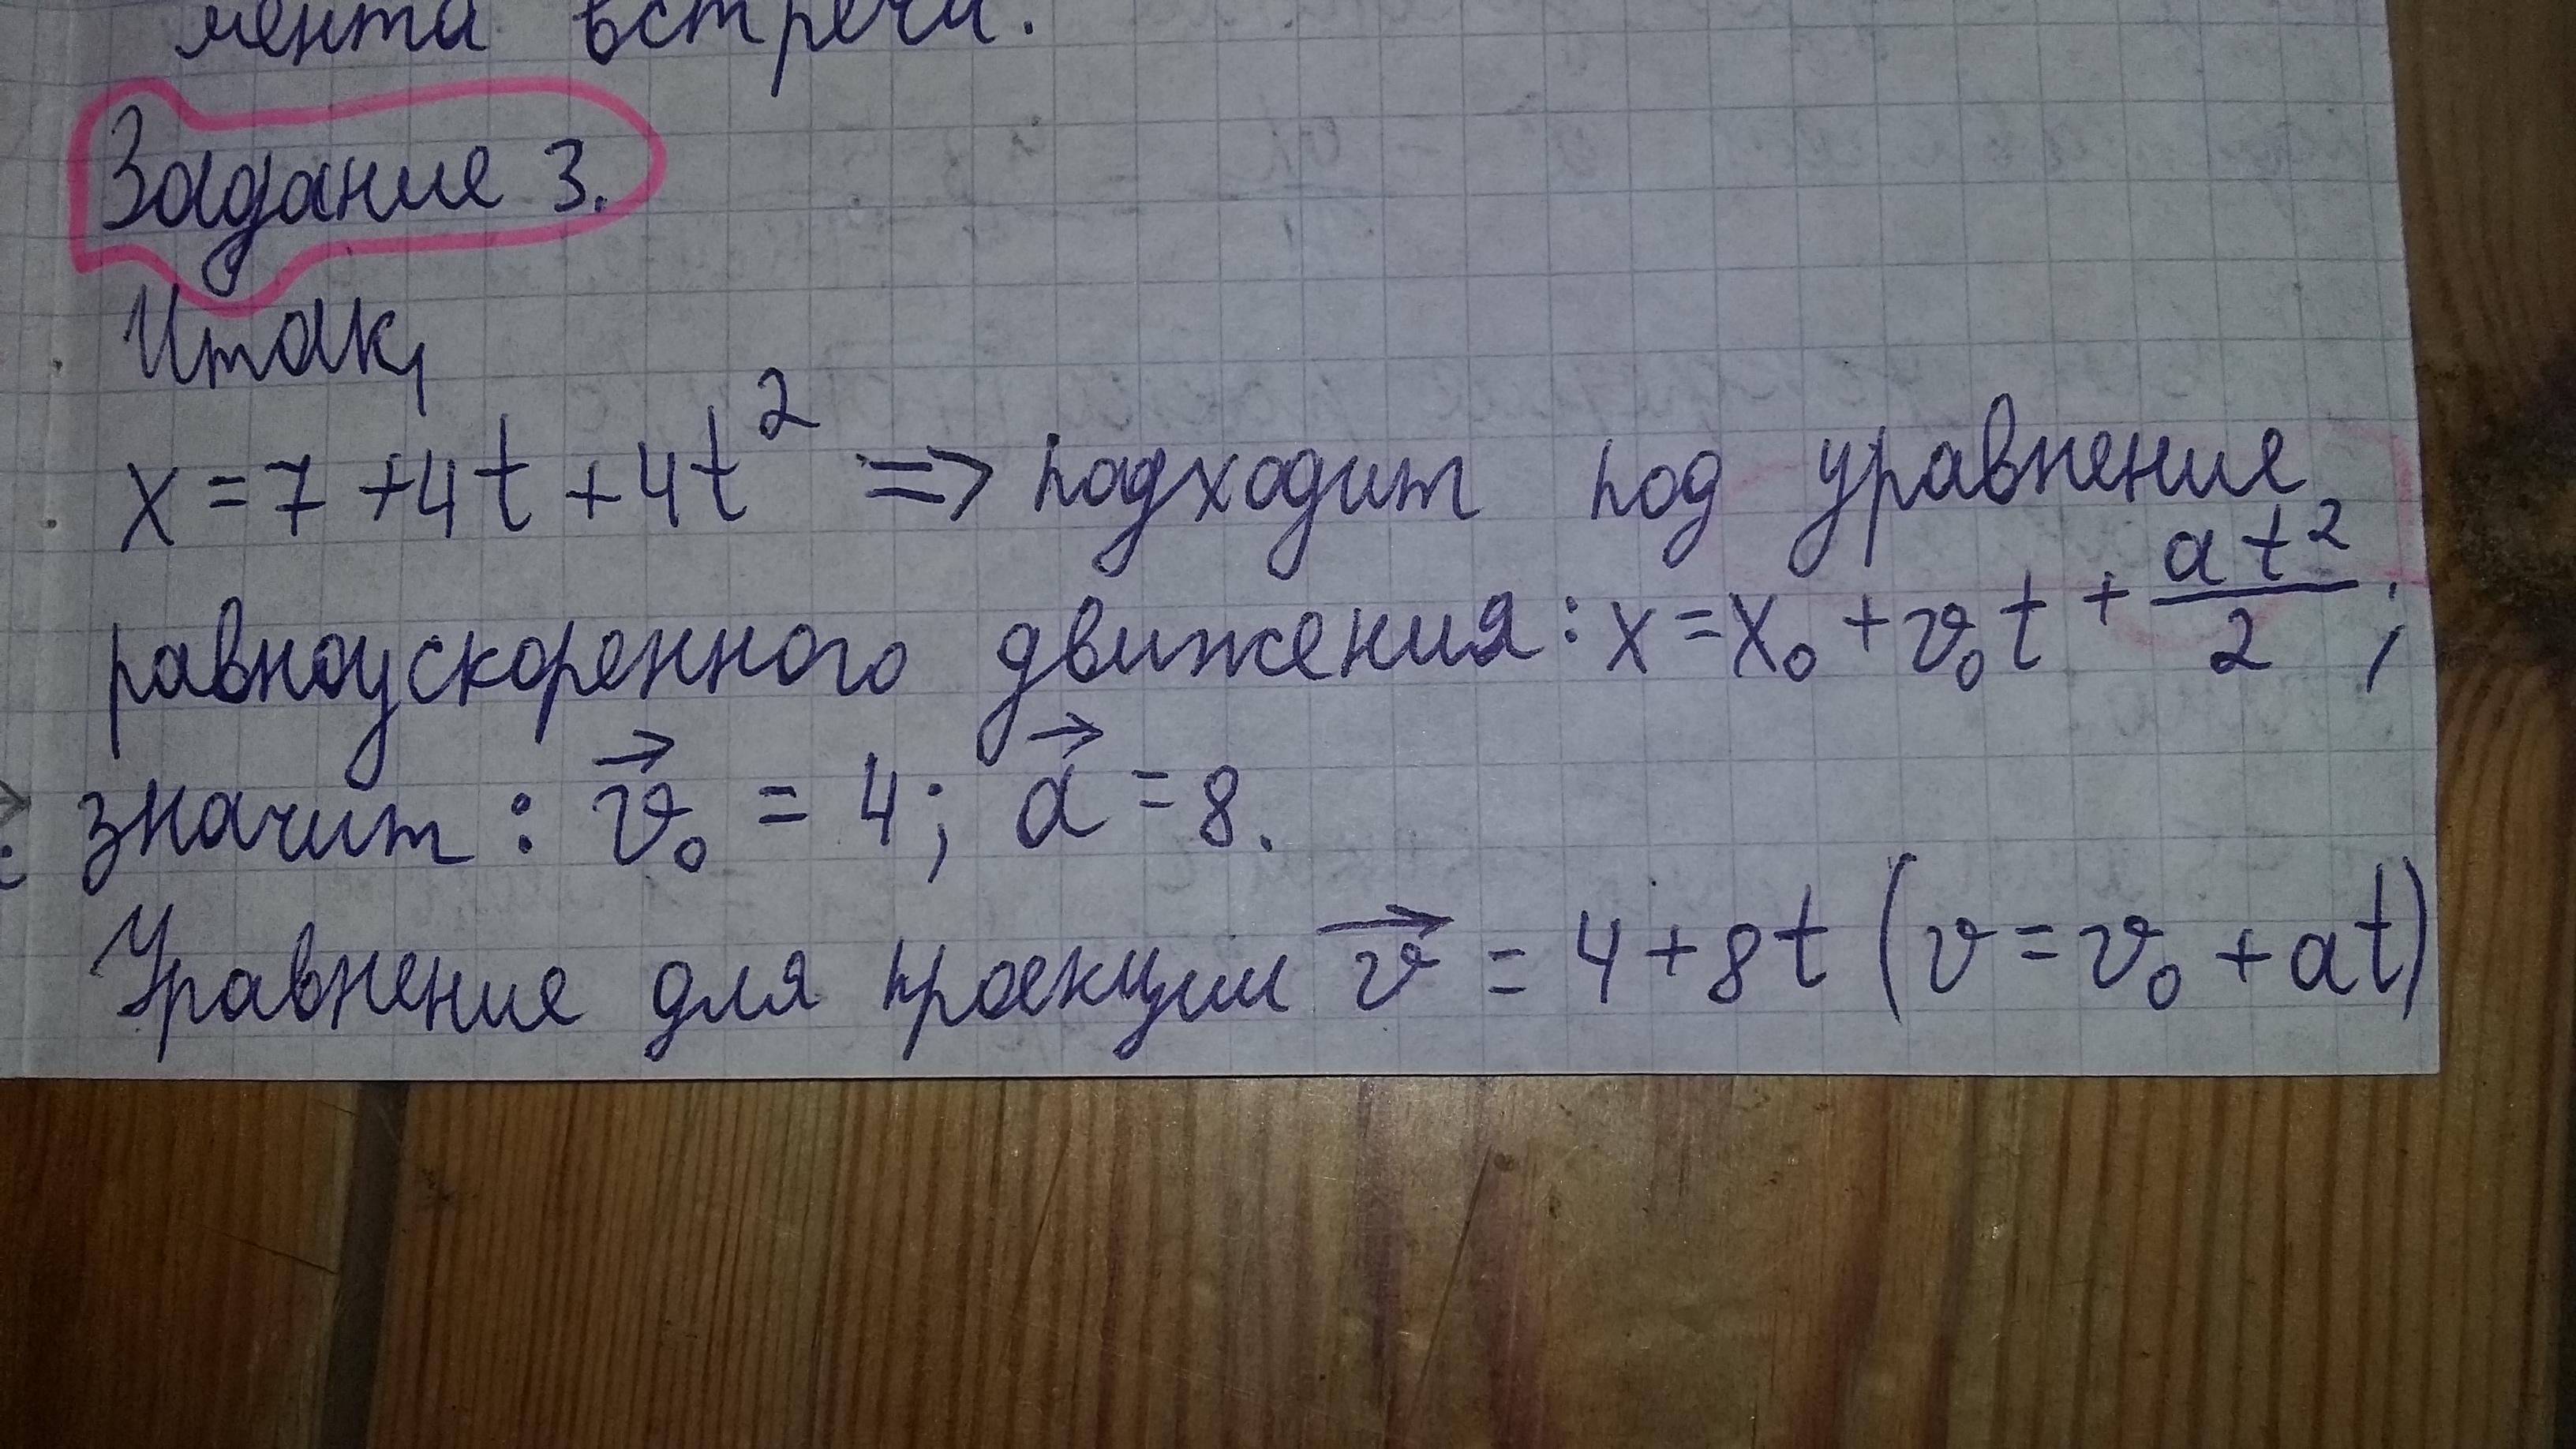 мента встречи.
Задание 3.
Итак,
x = 7 + 4t + 4t² => подходит под уравнение
равноускоренного движения: x = x₀ + v₀t + at²/2;
значит: v⃗₀ = 4; a⃗ = 8.
Уравнение для проекции v⃗ = 4 + 8t (v = v₀ + at)